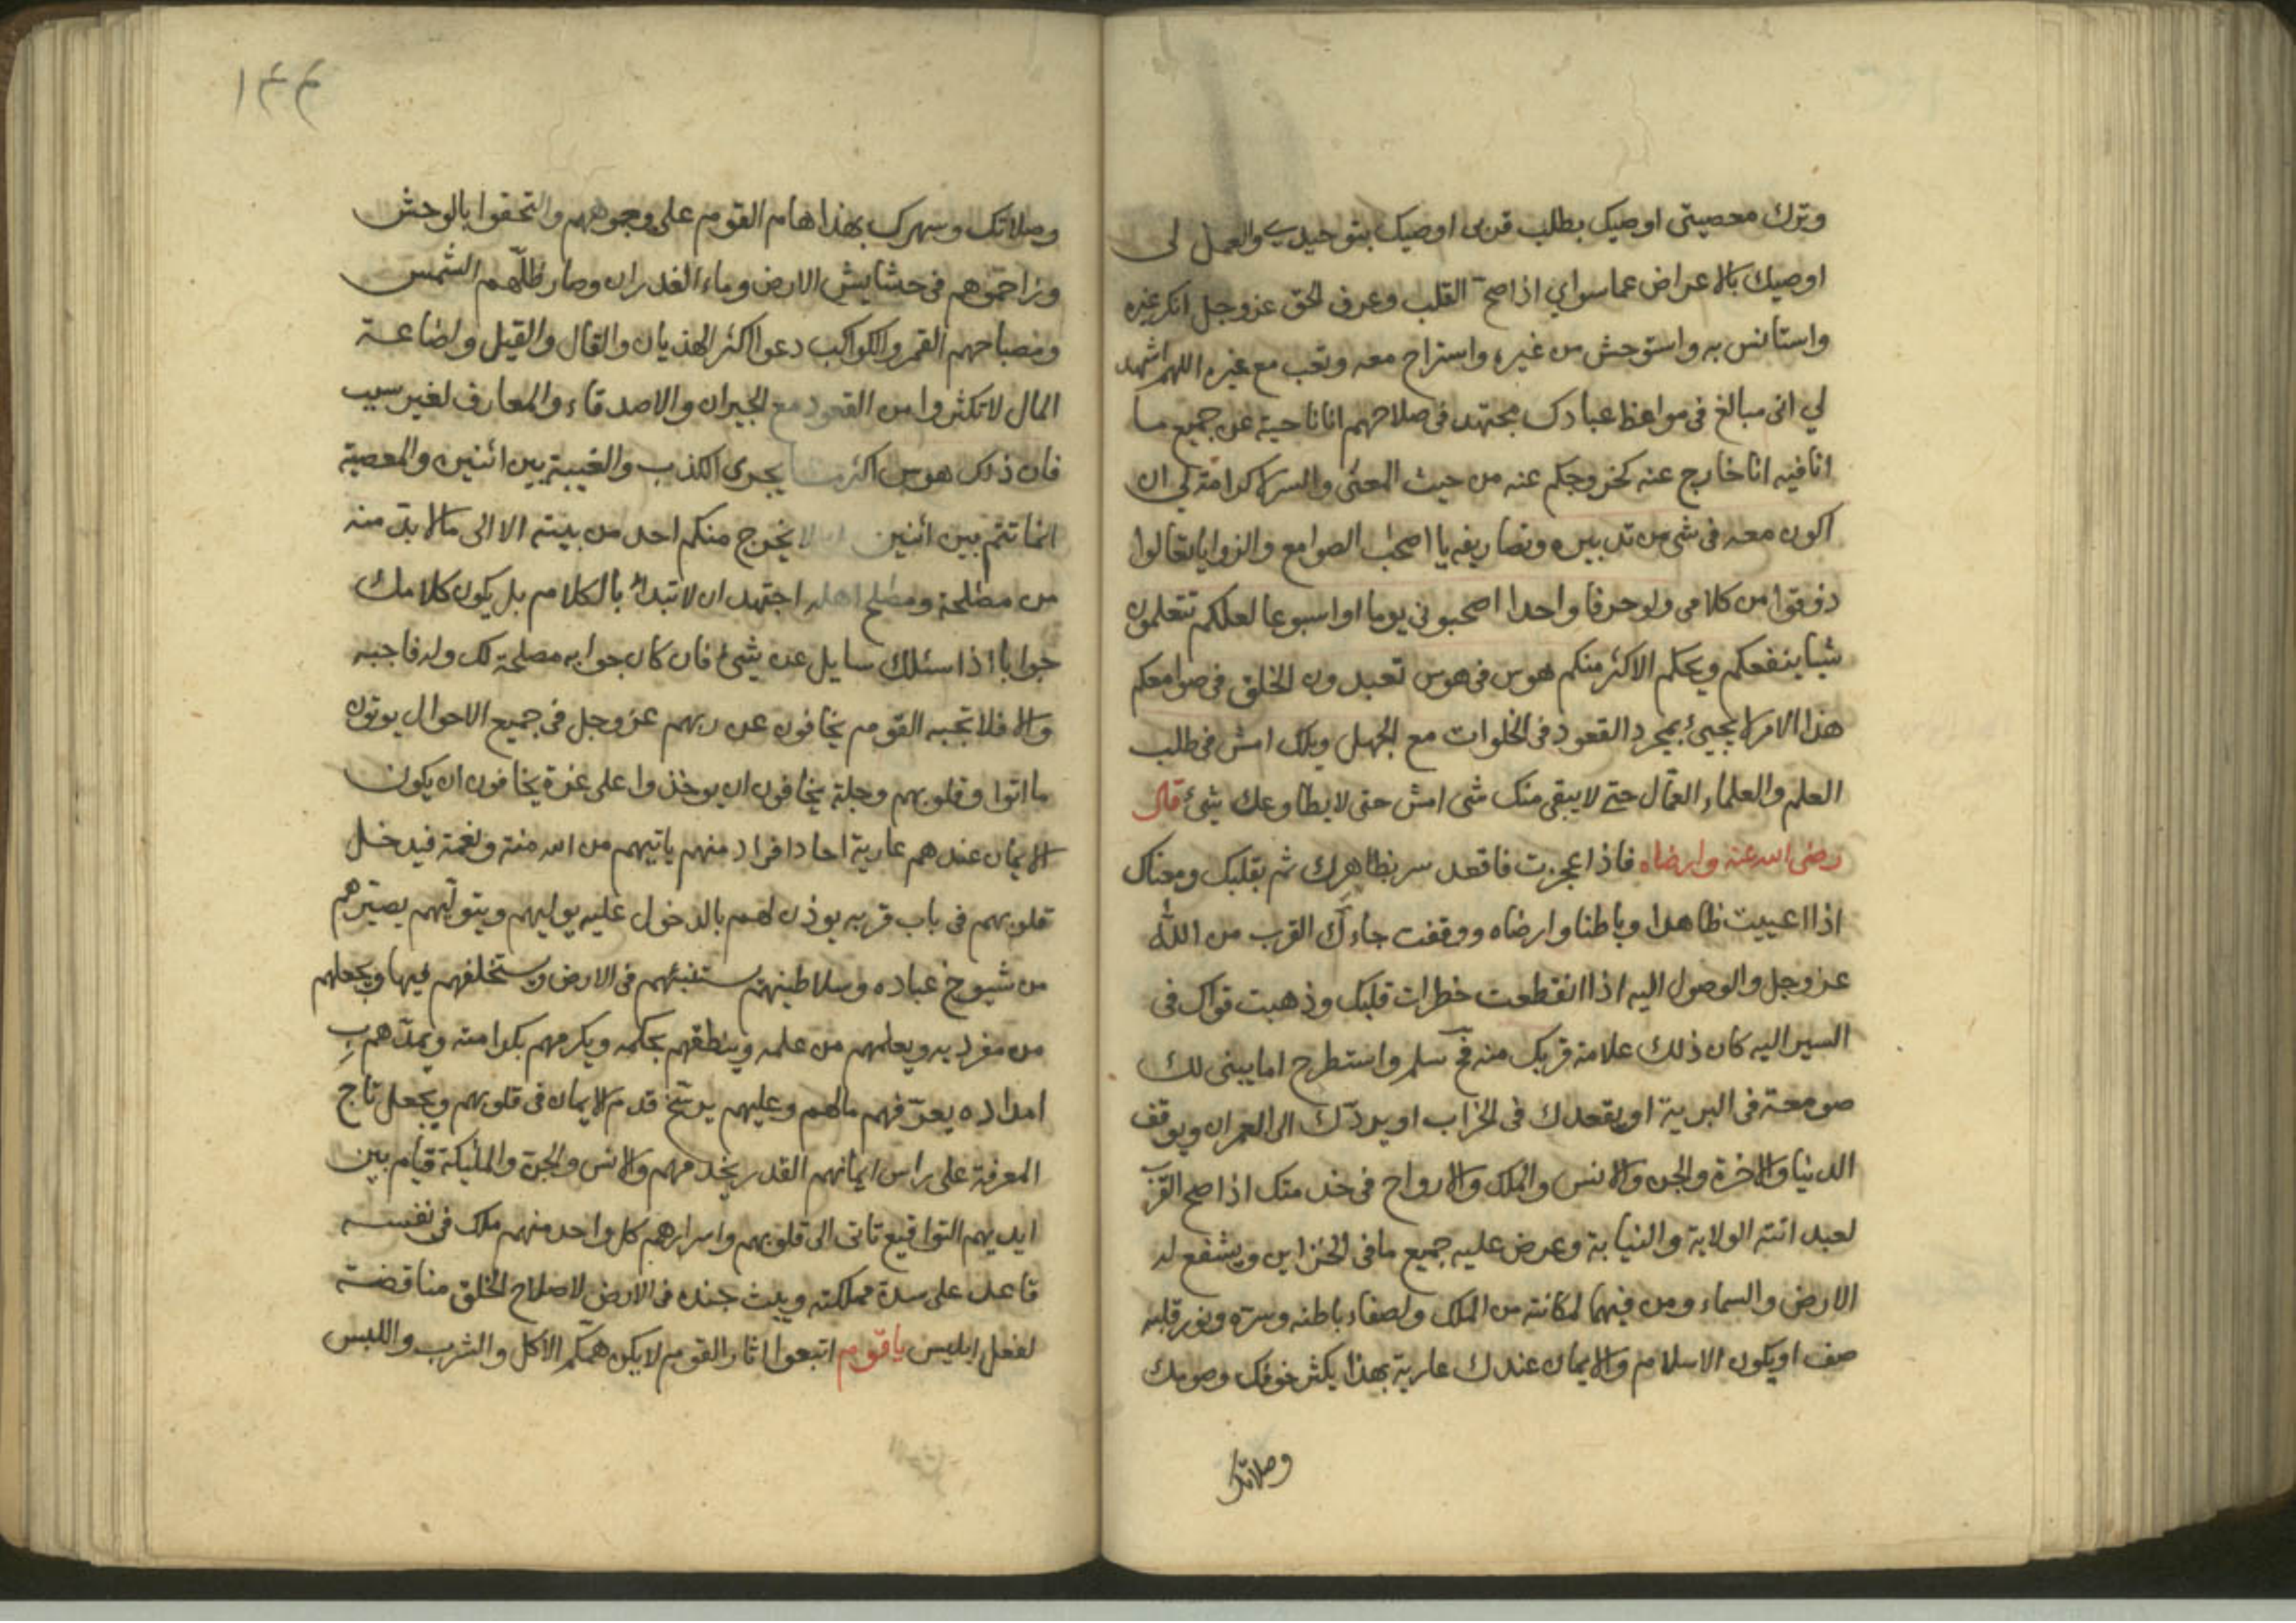 وترك معصيتى اوصيك بطلب قربى اوصيك بتوحيدى والعمل لى
اوصيك بالاعراض عما سواي اذا صح القلب وعرف الحق عز وجل انكر غيره
واستانس به واستوحش من غيره واستراح معه وتعب مع غيره اللهم اشهد
لي انى مبالغ فى مواعظ عبادك مجتهد فى صلاحهم انا ناحية عن جميع ما
انا فيه انا خارج عنه كخروجكم عنه من حيث المعنى والسر لا كرامة لي ان
اكون معه فى شى من تدبيره وتصاريفه يا اصحاب الصوامع والزوايا تعالوا
ذوقوا من كلامى ولو حرفا واحدا اصحبونى يوما او اسبوعا لعلكم تتعلمون
شيا ينفعكم ويحكم الاكثر منكم هوس فى هوس تعبدون الخلق فى صوامعكم
هذا الامر لا يجيئ بمجرد القعود فى الخلوات مع الجهل ويلك امش فى طلب
العلم والعلماء العمّال حتى لا يبقى منك مشى امش حتى لا يطاوعك شئ قال
رضى الله عنه وارضاه فاذا عجزت فاقعد سر بظاهرك ثم بقلبك ومعناك
اذا اعييت ظاهرا وباطنا وارضاه ووقفت جاءك القرب من الله
عز وجل والوصول اليه اذا انقطعت خطرات قلبك وذهبت قواك فى
السير اليه كان ذلك علامة قربك منه فح سلم واستطرح اما يبنى لك
صومعة فى البرية او يقعدك فى الخراب او يردّك الى العمران ويوقف
الدنيا والاخرة والجن والانس والملك والارواح فى خدمتك اذا صح القرب
لعبد اتته الولاية والنيابة وعرض عليه جميع ما فى الخزاين ويشفع له
الارض والسماء ومن فيهما لمكانته من الملك ولصفاء باطنه وسرّه ونور قلبه
صف او يكون الاسلام والايمان عندك عارية بهذا يكثر خوفك وصومك
وصلاتك
١٣٣
وصلاتك وسهرك بهذا هام القوم على وجوههم والتحقوا بالوحش
وزاحموهم فى حشايش الارض وماء الغدران وصار ظلّهم الشمس
ومصباحهم القمر والكواكب دعوا اكثر الهذيان والقال والقيل واضاعة
المال لا تكثروا من القعود مع الجيران والاصدقاء والمعارف لغير سبب
فان ذلك هوس اكثر ما يجرى الكذب والغيبة بين اثنين والمعصية
انما تتم بين اثنين لا يخرج منكم احد من بيته الا الى ما لا بدّ منه
من مصلحة ومصلح اهله اجتهد ان لا تبدأ بالكلام بل يكون كلامك
جوابا اذا سئلك سايل عن شئ فان كان جوابه مصلحة لك وله فاجبه
والا فلا تجبه القوم يخافون عن ربهم عز وجل فى جميع الاحوال يوتون
ما اتوا وقلوبهم وجلة يخافون ان يوخذوا على غرة يخافون ان يكون
الايمان عندهم عارية احاد افراد منهم ياتيهم من الله منة ونعمة فيدخل
قلوبهم فى باب قربه يوذن لهم بالدخول عليه يوليهم ويتولّيهم يصيّرهم
من شيوخ عباده وسلاطينهم يستنبئهم فى الارض ويستخلفهم فيها ويجعلهم
من مفرديه ويعلمهم من علمه وينطقهم بحكمه ويكرمهم بكرامته ويمدّهم ب
امداده يعرّفهم مالهم وعليهم يرسّخ قدم الايمان فى قلوبهم ويجعل تاج
المعرفة على راس ايمانهم القدر يخدمهم والانس والجن والمليكة قيام بين
ايديهم التواقيع تاتى الى قلوبهم واسرارهم كل واحد منهم ملك فى نفسه
قاعد على سدة مملكته ويبث جنده فى الارض لاصلاح الخلق مناقضة
لفعل ابليس يا قوم اتبعوا اثار القوم لا يكن همّكم الاكل والشرب واللبس